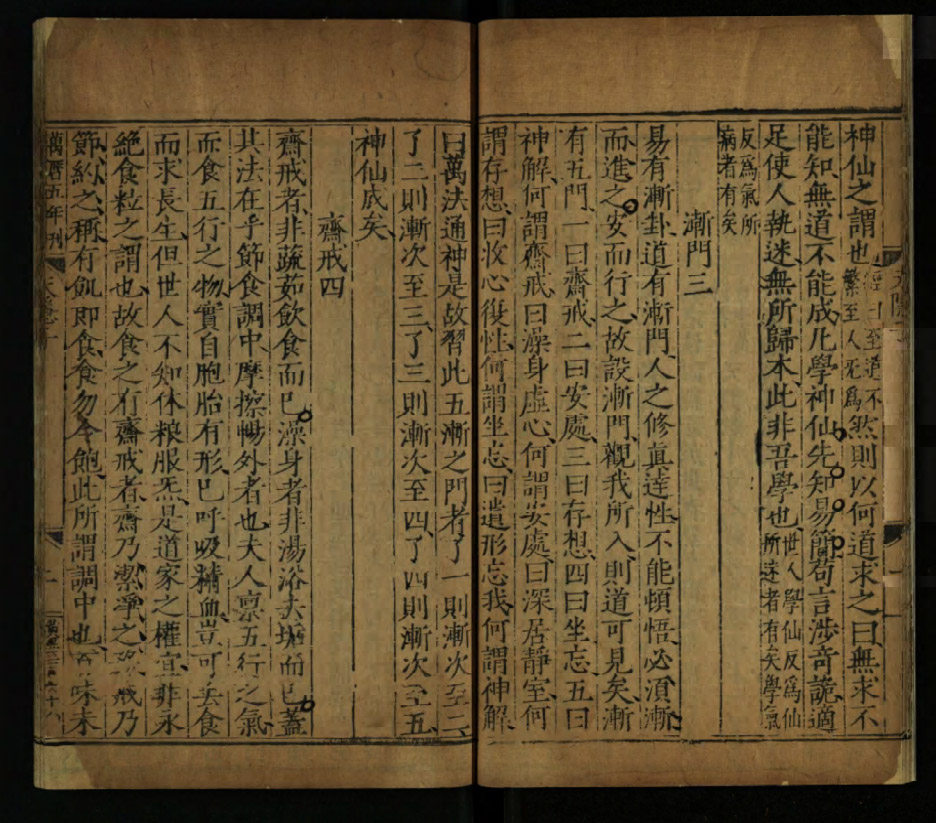 天隱
神仙之謂也經曰至道不繁至人无為然則以何道求之曰無求不
能知無道不能成凡學神仙先知易簡苟言涉奇詭適
足使人執迷無所歸本此非吾學也世人學仙反為仙所迷者有矣學氣
反為氣所病者有矣
漸門三
易有漸卦道有漸門人之修真達性不能頓悟必須漸
而進之安而行之故設漸門觀我所入則道可見矣漸
有五門一曰齋戒二曰安處三曰存想四曰坐忘五曰
神解何謂齋戒曰澡身虛心何謂安處曰深居靜室何
謂存想曰收心復性何謂坐忘曰遺形忘我何謂神解
曰萬法通神是故習此五漸之門者了一則漸次至二
了二則漸次至三了三則漸次至四了四則漸次至五
神仙成矣
齋戒四
齋戒者非蔬茹飲食而已澡身者非湯浴去垢而已蓋
其法在乎節食調中摩擦暢外者也夫人稟五行之氣
而食五行之物實自胞胎有形已呼吸精血豈可去食
而求長生但世人不知休粮服炁是道家之權宜非永
絶食粒之謂也故食之有齋戒者齋乃潔淨之務戒乃
節約之稱有飢即食食勿令飽此所謂調中也百味未
萬曆五年刊